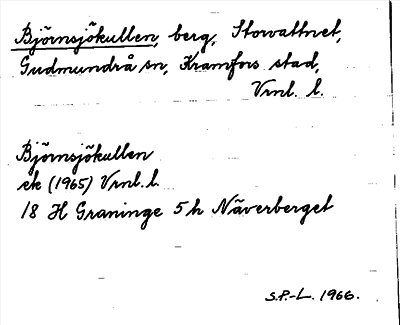 Björnsjökullen, berg, Storvattnet,
Gudmundrå sn, Kramfors stad,
Vrnl. l.
Björnsjökullen
ek (1965) Vrnl. l.
18 H Graninge 5 h Näverberget
S.P.-L. 1966.